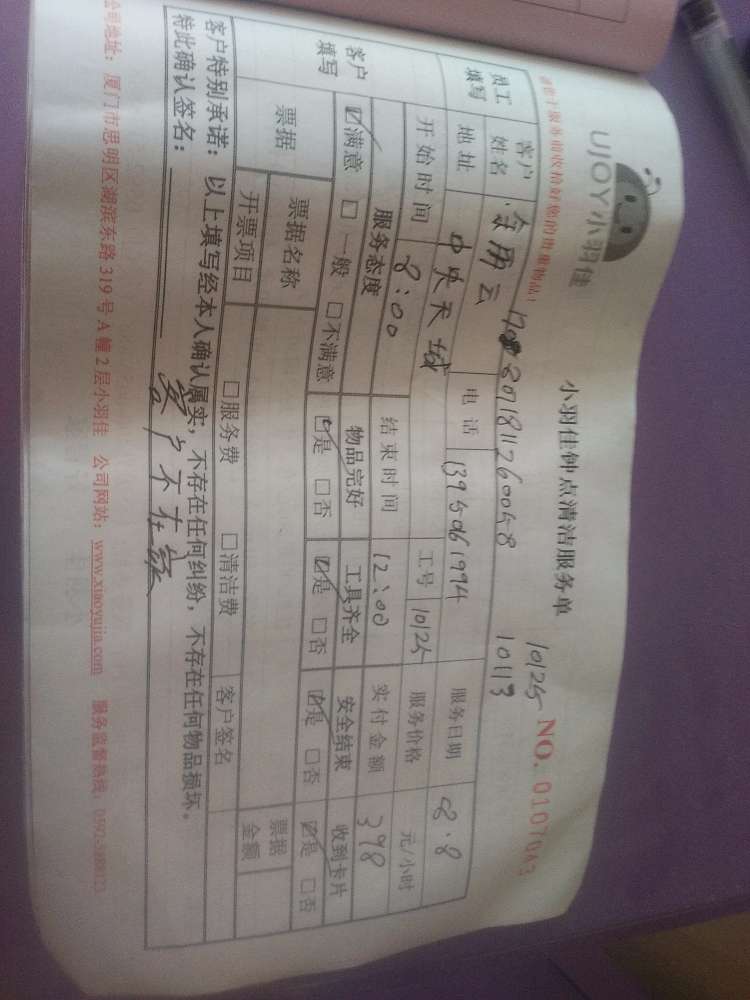 UJOY小羽佳
小羽佳钟点清洁服务单
10125
NO. 0107043
10113
请您于服务前收拾好您的贵重物品！
201811260058
员工填写
客户姓名
电话
1395061994
服务日期
8.8
地址
中央天城
工号
10125
服务价格
元/小时
开始时间
8:00
结束时间
12:00
实付金额
398
客户填写
服务态度
物品完好
工具齐全
安全结束
收到卡片
☑满意 □一般 □不满意
☑是 □否
☑是 □否
☑是 □否
☑是 □否
票据
票据名称
票据金额
开票项目
□服务费 □清洁费
客户签名
客户特别承诺：以上填写经本人确认属实，不存在任何纠纷，不存在任何物品损坏。
特此确认签名：
客户不在家
公司地址：厦门市思明区湖滨东路319号A幢2层小羽佳 公司网站：www.xiaoyujia.com 服务监督热线：